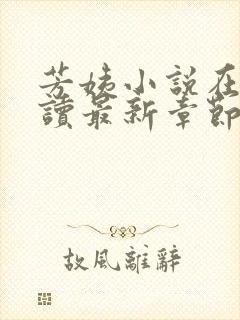 芳姨小說在
讀最新章節
故風離辭